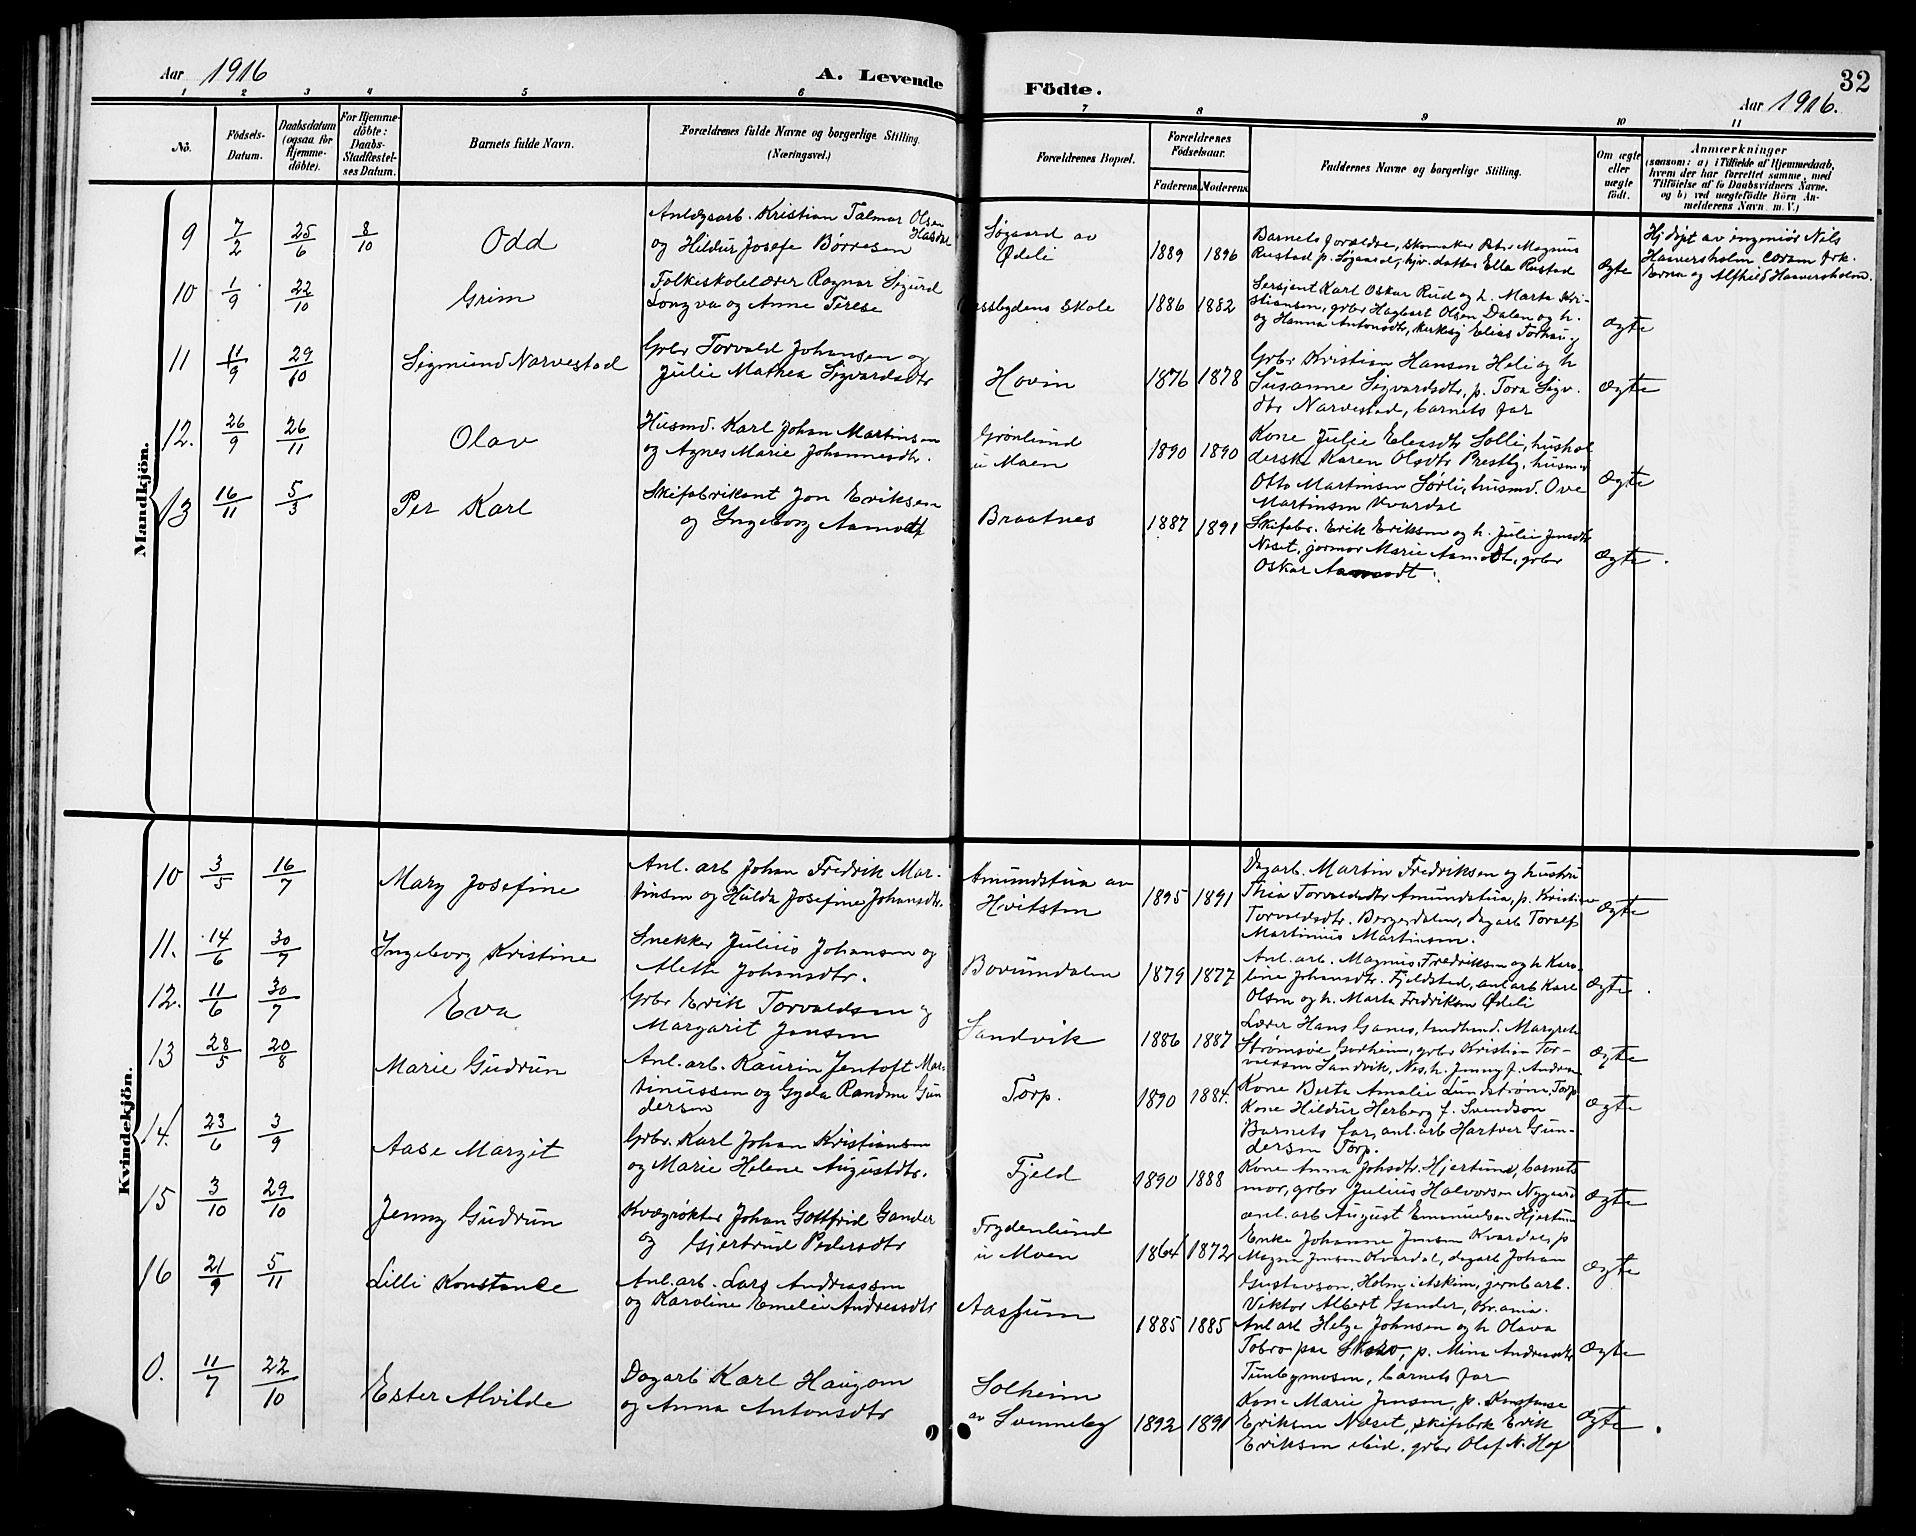 Aar 1916
A. Levende
Födte.
32
Aar 1916.
1 2 3 4 5 6 7 8 9 10 11
No.
Födsels-
Datum.
Daabsdatum
(ogsaa for
Hjemme-
döbte).
For Hjemme-
döbte:
Daabs-
Stadfæstel-
ses Datum.
Barnets fulde Navn.
Forældrenes fulde Navne og borgerlige Stilling.
(Næringsvei.)
Forældrenes Bopæl.
Forældrenes
Födselsaar.
Faderens. Moderens.
Faddernes Navne og borgerlige Stilling.
Om ægte
eller
uægte
födt.
Anmærkninger
(saasom: a) i Tilfælde af Hjemmedaab,
hvem der har forrettet samme, med
Tilföielse af to Daabsvidners Navne,
og b) ved uægtefödte Börn An-
melderens Navn m. V.)
Mandkjön.
9 7/2 25/6 8/10 Odd
Anlægsarb. Kristian Talmar Olsen
og Hildur Josefe Børresen
Søgaard av
Ødeli
1889 1896
Barnets forældre, skomaker Peter Magnus
Rustad p. Søgaard, hjv. datter Ella Rustad
Ægte
Hj.døpt av ingeniør Nils
Haaversholm coram frk.
Erna og Alfhild Haaversholm.
10 1/9 22/10 Grim
Folkeskolelærer Ragnar Sigurd
Longva og Anne Terese
Skole
1886 1882
Sersjent Karl Oskar Rud og h. Marta Kri-
stiansen, grbr Hagbart Olsen Dalen og h.
og Hanna Antonsdtr, kirkesj Elias Torhaug
Ægte
11 11/9 29/10 Sigmund Narvestad
Grbr Torvald Johansen og
Julie Mathea Sigvardsdtr
Hovin
1876 1878
Grbr Kristian Hansen Heli og h
Susanne Sigvardsdtr, p. Tora Sigv.
dtr Narvestad, barnets far
Ægte
12. 26/9 26/11 Olav
Husmd. Karl Johan Martinsen
og Agnes Marie Johannesdtr.
Grønlund
u Moen
1890 1890
Kone Julie Eleasdtr Solli, hushol
derske Karen Olsdtr Prestby, husmd
Otto Martinsen Sørli, husmd. Ove
Martinsen Kvardal
Ægte
13 16/11 5/3 Per Karl
Skifabrikant Jon Eriksen
og Ingeborg Aamodt
Braatnes
1887 1891
Skifabr. Erik Eriksen og h. Julie Jensdtr
Næset, jormor Marie Aamodt, grbr
Oskar Aamodt.
Ægte
Kvindekjön.
10 3/5 16/7 Mary Josefine
Anl. arb Johan Fredrik Mar-
tinsen og Hulda Josefine Johansdtr.
Amundstua av
Hvitsten
1895 1891
Dagarb. Martin Fredriksen og hustru
Thea Torvaldsdtr Amundstua, p. Kristine
Torvaldsdtr. Bergerdalen, dagarb Toralf
Martinius Martinsen.
Ægte
11. 14/6 30/7 Ingeborg Kristine
Snekker Julius Johansen og
Alette Johansdtr.
Borumdalen
1879 1877
Anl. arb. Magnus Fredriksen og h Karo-
line Johansdtr. Fjeldstad, anl.arb Karl
Olsen og h. Marta Fredriksen Ødeli
Ægte
12. 11/6 30/7 Eva
Grbr Erik Torvaldsen og
Margarit Jensen
Sandvik
1886 1887
Lærer Hans Ganes, landhand. Margrete
Strømsøe Garheim, grbr Kristian Tor-
Sandvik, Nes, h. Jenny f. Andersen
Ægte
13 28/5 20/8 Marie Gudrun
Anl. arb. Kaurin Jentoft Mar-
tinussen og Gyda Randine Gun
dersen
Torp.
1890 1884.
Kone Berte Amalie Lundstrøm, Torp
Kone Hildur Herborg f. Svendson
Barnets far, anl. arb Hartver Gun-
dersen Torp.
Ægte
14. 23/6 3/9 Aase Margit
Grbr. Karl Johan Kristiansen
og Marie Helene Augustdtr.
Fjeld
1890 1888
Kone Anna Johsdtr. Hjertum, barnets
mor, grbr Julius Halvorsen Nygaard
anl. arb August Emanuelsen Hjertum
Ægte
15 3/10 29/10 Jenny Gudrun
Kvægrøkter Johan Gottfrid Gander
og Gjertrud Pedersdtr
Frydenlund
u Moen
1864 1872
Enke Johanne Jensen Kvardal, p
Magna Jensen Kvardal, dagarb Johan
Gustavson, Holm i Askim, jernb arb.
Viktor Albert Gander, Kr.ania.
Ægte
16 21/9 5/11 Lilli Konstance
Anl. arb. Lars Andreassen
og Karoline Emelie Andreasdtr
Aassum
1885 1885
Anl arb Helge Johnsen og h Olava
Tobro paa Skolo, p. Mina Andreasdtr
Tunbymosen, barnets far
Ægte
0. 11/7 22/10 Ester Alvilde
Dagarb Karl Haugom
og Anna Antonsdtr
Solheim
av Svenneby
1892 1891
Kone Marie Jensen, p. Konstanse
Eriksen Næset, skifabrk Erik
Eriksen ibid, grbr Olaf N. Hof
Ægte